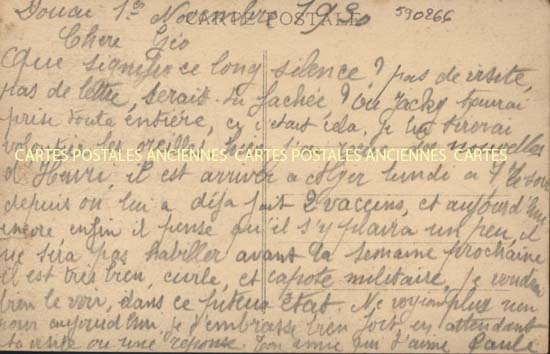 Douai 1er Novembre 1930
CARTE POSTALE
590866
Chere Gio
Que signifie ce long silence? pas de visite,
pas de lettre, serais-tu fachée? ou Jacky t'aurai
prise toute entière, si c'etait cela, je lui tirerai
volontier les oreilles, hier nous nouvelles
CARTES POSTALES ANCIENNES CARTES POSTALES ANCIENNES CARTES
d'Henri, il est arrivé a lundi a 7h le soir
depuis on lui a déja fait 2 vaccins, et aujourd'hui
encore enfin il pense qu'il s'y plaira un peu, il
ne sera pas habiller avant la semaine prochaine
il est très bien, et capote militaire, je voudrai
bien le voir, dans ce piteux état. Ne voyant plus rien
pour aujourd'hui, je t'embrasse bien fort, en attendant
ta visite ou une réponse. Ton amie qui t'aime Paule